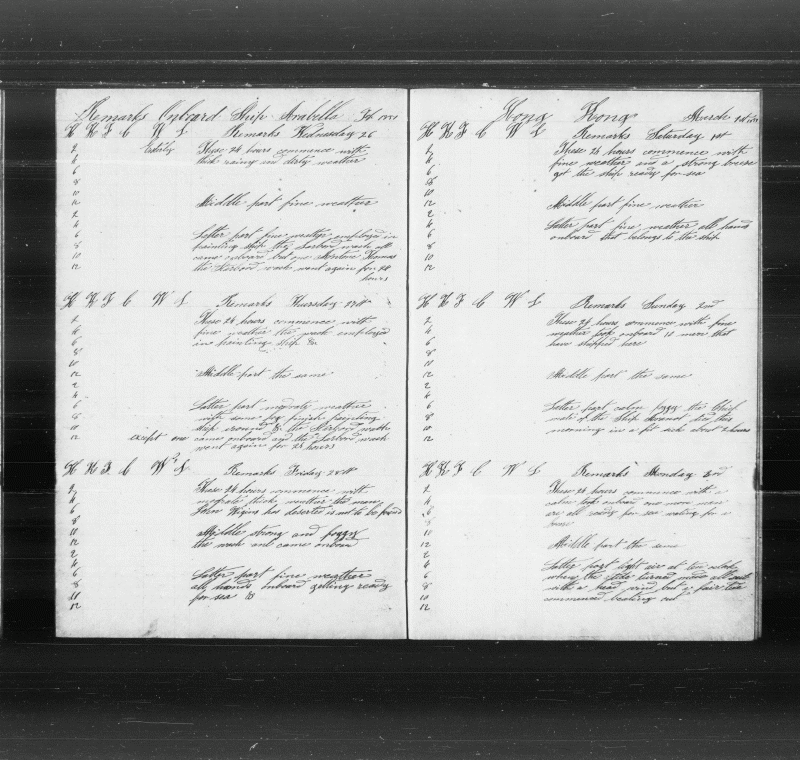 Remarks Onboard Ship Arabella Feb
H K F C W L Remarks Wednesday 26
2 Easterly These 24 hours commence with
4 thick rainy and dirty weather
6
8
10
12 Middle part fine weather
2
4
6 Latter part fine weather employed in
8 painting ship the Larbord wach all
10 came onboard but one
12 the Starbord wach went again for 24
hours
H K F C W L Remarks Thursday 27th
2 These 24 hours commences with
4 fine weather the wach employed
6 in painting ship &
8
10
12 Middle part the same
2
4
6 Latter part moderate weather
8 with some fog finish painting
10 ship round & the Starbord watch
12 except one came onboard and the Larbord wach
went again for 24 hours
H K F C W L Remarks Friday 28th
2 These 24 hours commence with
4 moderate thick weather the man
6 John Wigins has deserted is not to be found
8
10 Middle strong and foggy
12 the wach and came onboard
2
4
6 Latter part fine weather
8 all hands onboard getting ready
10 for sea &
12
Hong Kong March
H K F C W L Remarks Saturday 1st
2 These 24 hours commence with
4 fine weather and a strong breeze
6 got the ship ready for sea
8
10
12 Middle part fine weather
2
4 Latter part fine weather all hands
6 onboard that belongs to the ship
8
10
12
H K F C W L Remarks Sunday 2nd
2 These 24 hours commence with fine
4 weather took onboard 10 men that
6 have shipped here
8
10
12 Middle part the same
2
4
6 Latter part calm foggy the Chief
8 mate of the Ship
10 morning in a fit sick about 2 hours
12
H K F C W L Remarks Monday 3rd
2 These 24 hours commence with a
4 calm took onboard one more man
6 are all ready for sea waiting for a
8 breeze
10
12 Middle part the same
2
4 Latter part light air at
6 when the tide turned
8 with a head wind but a fair tide
10 commenced beating out
12